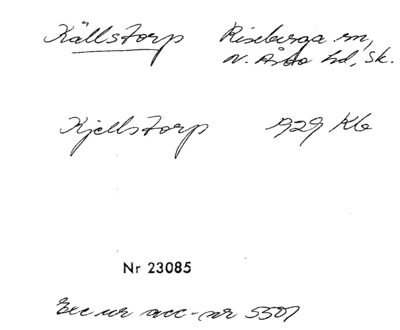 Källstorp Riseberga sn,
N. Åsbo hd, Sk.
Kjellstorp 1929 Kb
Nr 23085
Exc ur acc-nr 5307